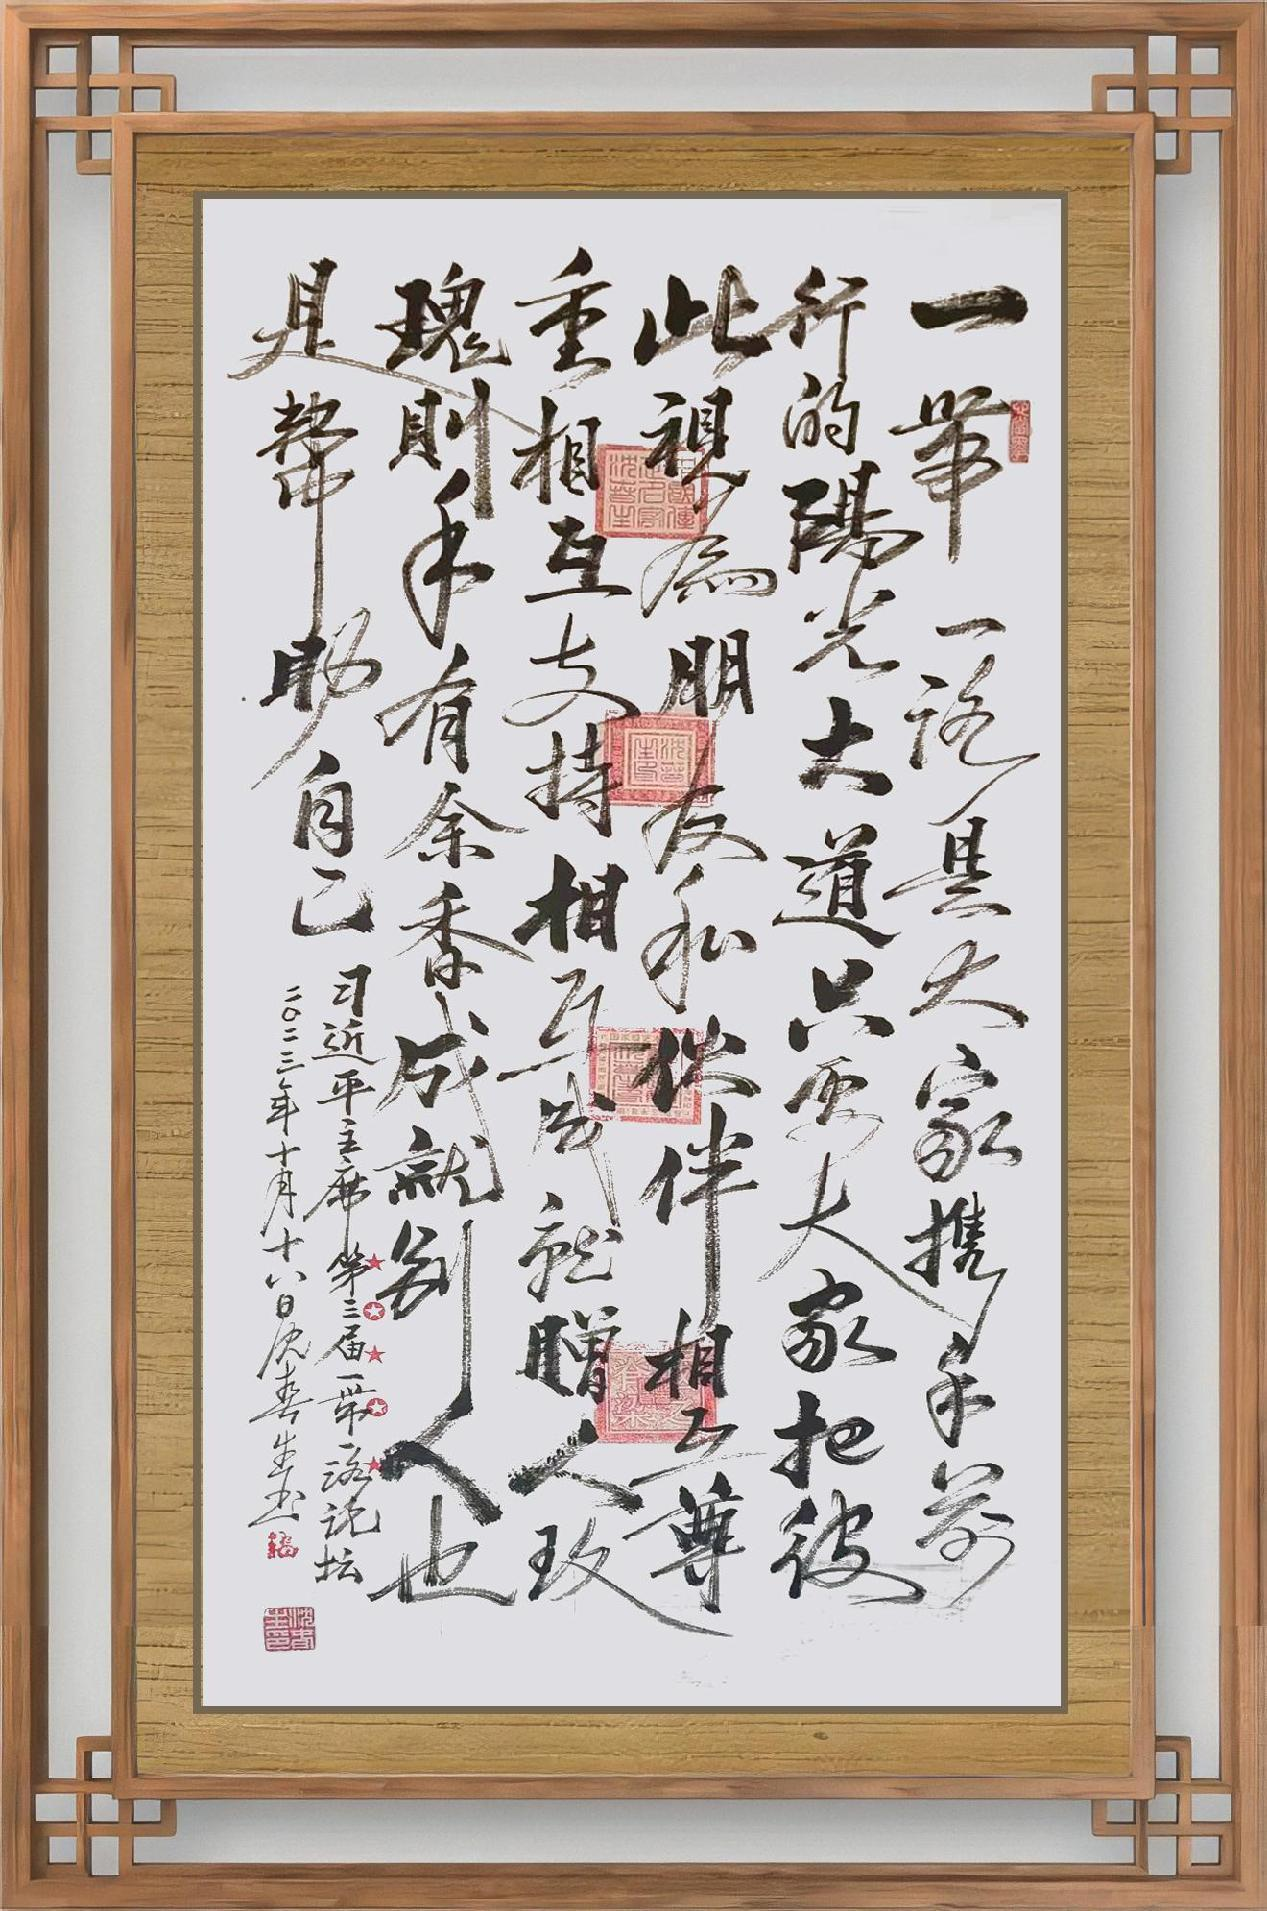 一帶一路是大家携手前
行的陽光大道只要大家把彼
此視為朋友和伙伴相互尊
重相互支持相互成就贈人玫
瑰則手有余香成就别人也
是幫助自己
习近平主席第三届一帶一路论坛
二〇二三年十月十八日沈春生书
福
沈春生印